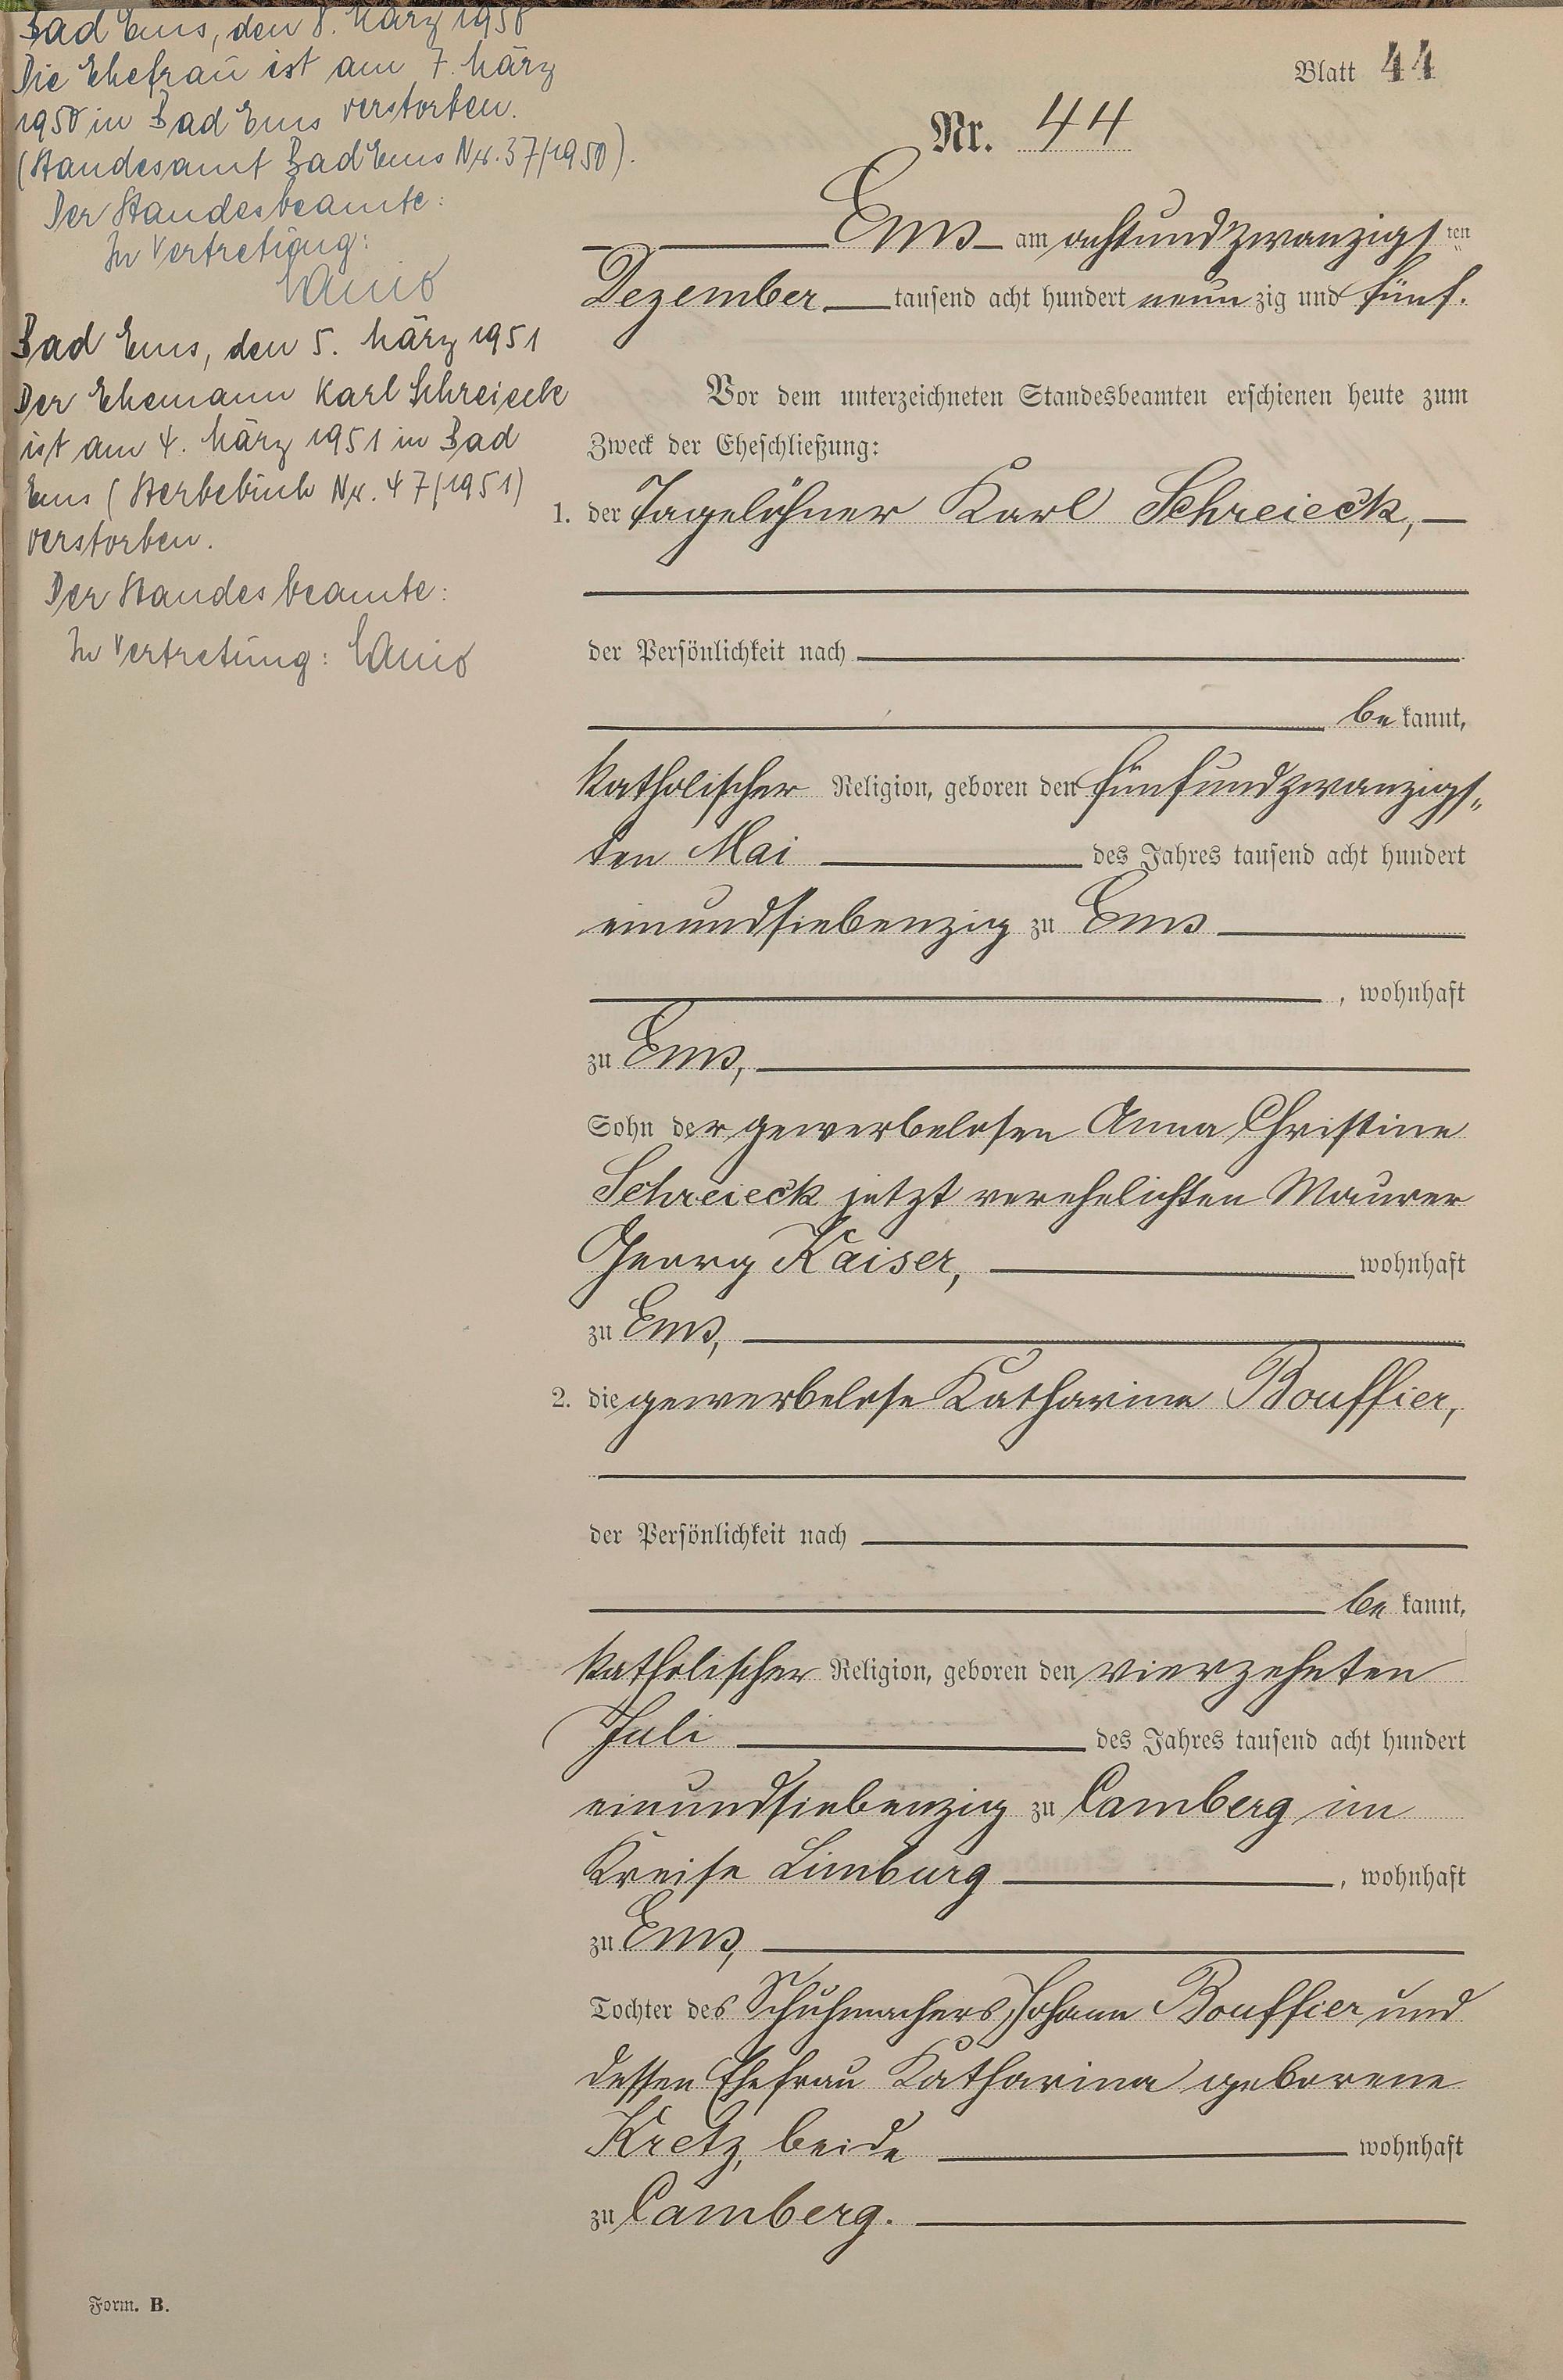 Bad Ems, den 8. März 1950
Die Ehefrau ist am 7. März
1950 in Bad Ems verstorben.
(Standesamt Bad Ems Nr. 37/1950).
Der Standesbeamte:
In Vertretung:
Bad Ems, den 5. März 1951
Der Ehemann Karl Schreieck
ist am 4. März 1951 in Bad
Ems (Sterbebuch Nr. 47/1951)
verstorben.
Der Standesbeamte:
In Vertretung:
Blatt 44
Nr. 44
Ems am achtundzwanzigsten
Dezember tausend acht hundert neunzig und fünf.
Vor dem unterzeichneten Standesbeamten erschienen heute zum
Zweck der Eheschließung:
1. der Tagelöhner Karl Schreieck,
der Persönlichkeit nach
bekannt,
katholischer Religion, geboren den fünfundzwanzigs„
ten Mai des Jahres tausend acht hundert
einundsiebenzig zu Ems
, wohnhaft
zu Ems,
Sohn der gewerbelosen Anna Christine
Schreieck jetzt verehelichten Maurer
Georg Kaiser, wohnhaft
zu Ems,
2. die gewerbelose Katharina Bouffier,
der Persönlichkeit nach
bekannt,
katholischer Religion, geboren den vierzehnten
Juli des Jahres tausend acht hundert
einundsiebenzig zu Camberg im
Kreise Limburg, wohnhaft
zu Ems,
Tochter des Schuhmachers Johann Bouffier und
dessen Ehefrau Katharina geborene
Kretz, beide wohnhaft
zu Camberg.
Form. B.